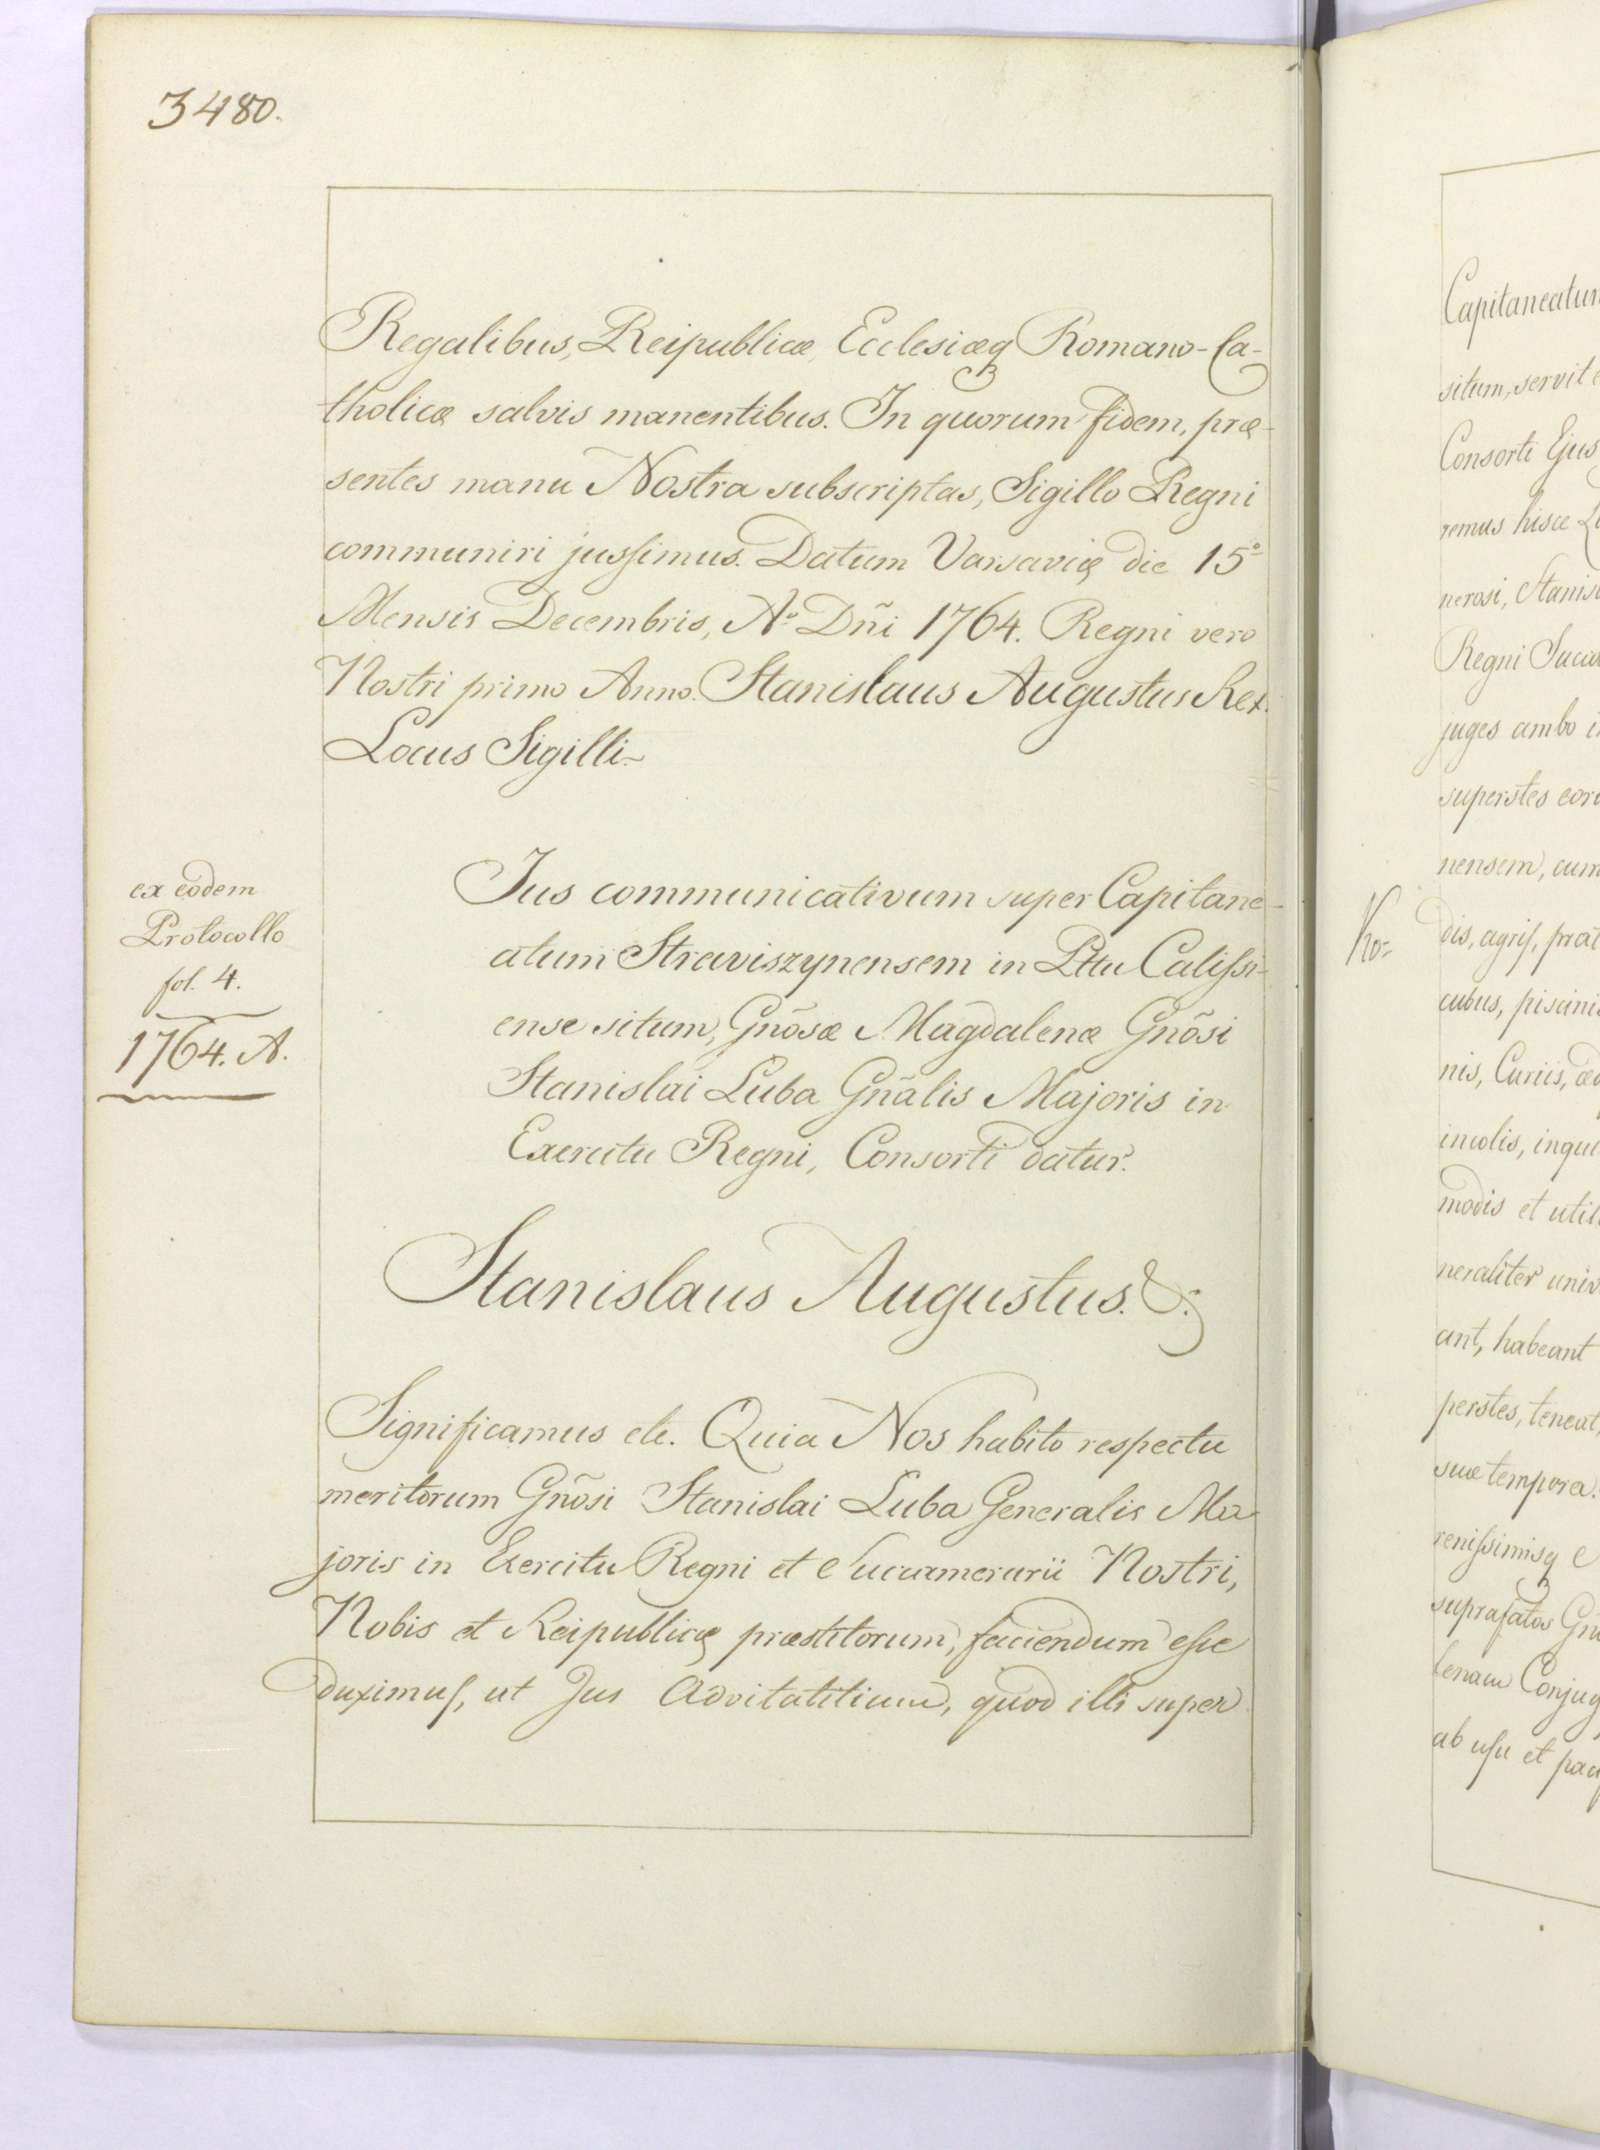 3480.
Regalibus, Reipublicæ, Ecclesiæq Romano-Ca-
tholicæ salvis manentibus. In quorum fidem, præ-
sentes manu Nostra subscriptas, Sigillo Regni
communiri jussimus. Datum Varsaviæ die 15º
Mensis Decembris, Aº Dñi 1764. Regni vero
Nostri primo Anno. Stanislaus Augustus Rex.
Locus Sigilli
ex eodem
Protocollo
fol. 4.
1764. A.
Jus communicativum super Capitane-
atum Straviszynensem in Pttu Calissi-
ense situm, Gnõsæ Magdalenæ Gnõsi
Stanislai Luba Gnãlis Majoris in
Exercitu Regni, Consorti datur.
Stanislaus Augustus. &:
Significamus etc. Quia Nos habito respectu
meritorum Gnõsi Stanislai Luba Generalis Ma-
joris in Exercitu Regni et Nostri,
Nobis et Reipublicæ præstitorum, faciendum esse
duximus, ut Jus advitalitium, quod illi super
Capitaneatum
situm, servit
Consorti Ejus
remus hisce
nerosi,
Regni
juges ambo
superstes
nensem, cum
Ko-
dis, agris,
cubus,
nis, Curiis,
incolis,
modis et
neraliter
ant, habeant
perstes, teneat,
suæ tempora.
renissimisq
suprafatos
lenam
ab usu et